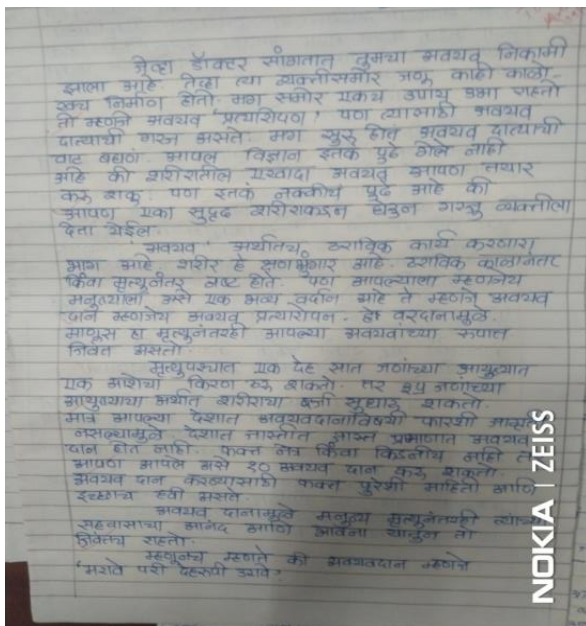 जेव्हा डॉक्टर सांगतात तुमचा अवयव निकामी
झाला आहे. तेव्हा त्या व्यक्तीसमोर जणू काही काळो-
खच निर्माण होतो. मग समोर एकच उपाय उभा राहतो
तो म्हणजे अवयव 'प्रत्यारोपण'. पण त्यासाठी अवयव
दात्याची गरज असते. मग सुरू होते अवयव दात्याची
वाट बघणं. आपलं विज्ञान इतकं पुढे गेले नाही
आहे की शरीरातील एखादा अवयव आपण तयार
करु शकू. पण इतकं नक्कीच पुढे आहे की
आपण एका सुदृढ शरीराकडून घेऊन गरजू व्यक्तीला
देता येईल.
'अवयव' अर्थातच ठराविक कार्य करणारा
भाग आहे. शरीर हे क्षणभंगुर आहे. ठराविक काळानंतर
किंवा मृत्यूनंतर नष्ट होते. पण आपल्याला म्हणजेच
मनुष्याला असे एक भव्य वर्दान आहे ते म्हणजे अवयव
दान म्हणजेच अवयव प्रत्यारोपन. हा वरदानामुळे
माणूस हा मृत्यूनंतरही आपल्या अवयवांच्या रुपात
जिवंत असतो.
मृत्यूपश्चात एक देह सात जणांच्या आयुष्यात
एक आशेचा किरण ठरु शकतो. तर ३५ जणांच्या
आयुष्याचा अर्थात शरीराचा दर्जा सुधारु शकतो.
मात्र आपल्या देशात अवयवदानाविषयी फारशी जागृती
नसल्यामुळे देशात जास्तीत जास्त प्रमाणात अवयव
दान होत नाही. फक्त नेत्र किंवा किडनीच नाही तर
आपण आपले असे १० अवयव दान करू शकतो.
अवयव दान करण्यासाठी फक्त पुरेशी माहिती आणि
इच्छाच हवी असते.
अवयव दानामुळे मनुष्य मृत्यूनंतरही त्यांच्या
सहवासाचा आनंद आणि भावना यातून तो
जिवंतच राहतो.
म्हणूनच म्हणते की अवयवदान म्हणजे
'मरावे परी देहरुपी उरावे'.
NOKIA | ZEISS